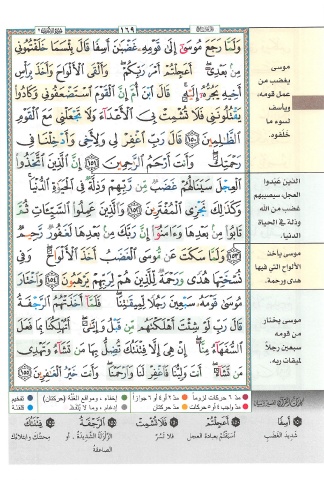 ١٦٩
وَلَمَّا رَجَعَ مُوسَىٰ إِلَىٰ قَوْمِهِ غَضْبَٰنَ أَسِفًا قَالَ بِئْسَمَا خَلَفْتُمُونِى
مِنۢ بَعْدِىٓ أَعَجِلْتُمْ أَمْرَ رَبِّكُمْ وَأَلْقَى ٱلْأَلْوَاحَ وَأَخَذَ بِرَأْسِ
أَخِيهِ يَجُرُّهُۥٓ إِلَيْهِ قَالَ ٱبْنَ أُمَّ إِنَّ ٱلْقَوْمَ ٱسْتَضْعَفُونِى وَكَادُوا۟
يَقْتُلُونَنِى فَلَا تُشْمِتْ بِىَ ٱلْأَعْدَآءَ وَلَا تَجْعَلْنِى مَعَ ٱلْقَوْمِ
ٱلظَّٰلِمِينَ ١٥٠ قَالَ رَبِّ ٱغْفِرْ لِى وَلِأَخِى وَأَدْخِلْنَا فِى
رَحْمَتِكَ وَأَنتَ أَرْحَمُ ٱلرَّٰحِمِينَ ١٥١ إِنَّ ٱلَّذِينَ ٱتَّخَذُوا۟
ٱلْعِجْلَ سَيَنَالُهُمْ غَضَبٌ مِّن رَّبِّهِمْ وَذِلَّةٌ فِى ٱلْحَيَوٰةِ ٱلدُّنْيَا
وَكَذَٰلِكَ نَجْزِى ٱلْمُفْتَرِينَ ١٥٢ وَٱلَّذِينَ عَمِلُوا۟ ٱلسَّيِّـَٔاتِ ثُمَّ
تَابُوا۟ مِنۢ بَعْدِهَا وَءَامَنُوٓا۟ إِنَّ رَبَّكَ مِنۢ بَعْدِهَا لَغَفُورٌ رَّحِيمٌ ١٥٣
وَلَمَّا سَكَتَ عَن مُّوسَى ٱلْغَضَبُ أَخَذَ ٱلْأَلْوَاحَ وَفِى
نُسْخَتِهَا هُدًى وَرَحْمَةٌ لِّلَّذِينَ هُمْ لِرَبِّهِمْ يَرْهَبُونَ ١٥٤ وَٱخْتَارَ
مُوسَىٰ قَوْمَهُۥ سَبْعِينَ رَجُلًا لِّمِيقَٰتِنَا فَلَمَّآ أَخَذَتْهُمُ ٱلرَّجْفَةُ
قَالَ رَبِّ لَوْ شِئْتَ أَهْلَكْتَهُم مِّن قَبْلُ وَإِيَّٰىَ أَتُهْلِكُنَا بِمَا فَعَلَ
ٱلسُّفَهَآءُ مِنَّآ إِنْ هِىَ إِلَّا فِتْنَتُكَ تُضِلُّ بِهَا مَن تَشَآءُ وَتَهْدِى
مَن تَشَآءُ أَنتَ وَلِيُّنَا فَٱغْفِرْ لَنَا وَٱرْحَمْنَا وَأَنتَ خَيْرُ ٱلْغَٰفِرِينَ ١٥٥
موسى
يغضب من
عمل قومه،
ويأسف
لسوء ما
خلفوه.
الذين عبدوا
العجل سيصيبهم
غضب من الله
وذلة في الحياة
الدنيا.
موسى يأخذ
الألواح التي فيها
هدى ورحمة.
موسى يختار
من قومه
سبعين رجلاً
لميقات ربه.
مدّ ٦ حركات لزوماً مدّ ٢ أو ٤ أو ٦ جوازاً إخفاء، ومواقع الغنّة (حركتان) تفخيم
مدّ واجب ٤ أو ٥ حركات مدّ حركتان إدغام، وما لا يُلفظ قلقلة
أَسِفًا
شديد الغضب
أَعَجِلْتُمْ
أسبقتم بعبادة العجل
فَلَا تُشْمِتْ
فلا تسُرّ
ٱلرَّجْفَةُ
الزلزلة الشديدة، أو الصاعقة
فِتْنَتُكَ
محنتك وابتلاؤك